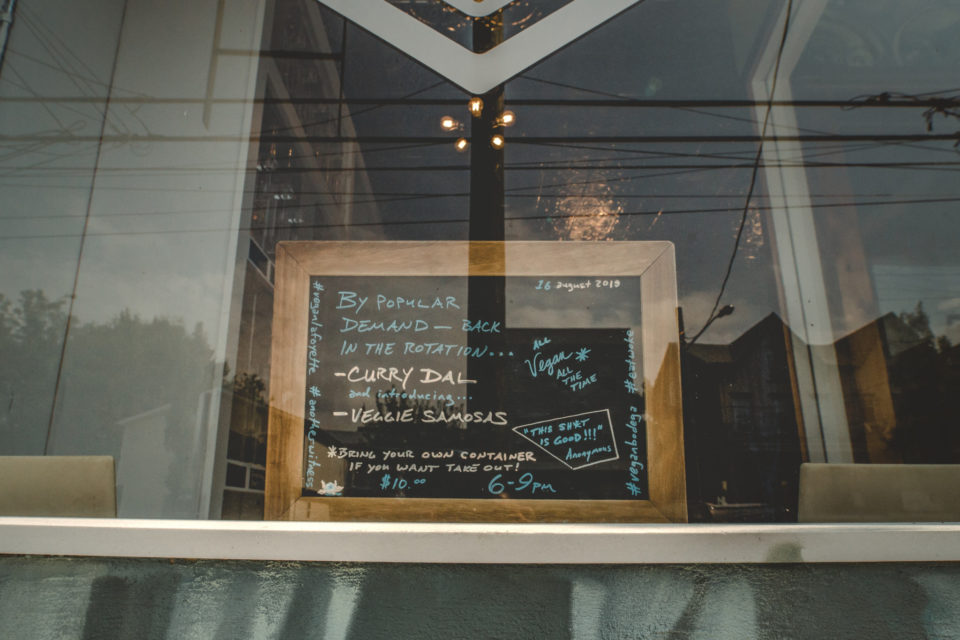 16 august 2019
By POPULAR
DEMAND — BACK
IN THE ROTATION...
-CURRY DAL
and introducing...
-VEGGIE SAMOSAS
ALL
Vegan *
ALL
THE
TIME
"THIS SH*T
IS GOOD!!!"
Anonymous
*BRING YOUR OWN CONTAINER
IF YOU WANT TAKE OUT!
$10.00
6-9PM
#veganlafayette #anotherwitness
#veganbodega #eatwoke